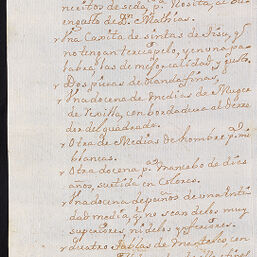 necitos de seda, pa. Nosita, al
engusto de Da. Mathias.
Una Capita de sintas de Tisu, q.
no tengan terciopelo, y en una pa-
labra, las de mejor calidad, y gusto,
Dos piezas de olandas finas,
Una docena de medias de Muger
de Sevilla, con bordadura al derre-
dor del quadrado.
Otra de Medias de hombre pa. mi
blancas.
Otra docena pa. mancebo de dies
años, surtida en Colores.
Una docena de paños de una
dad media q. no sean de los muy
superiores, ni de los ynferiores.
quatro tablas de manteles con